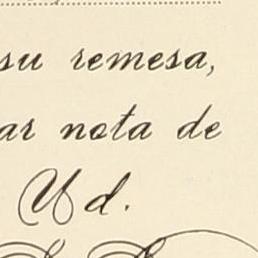 su remesa,
ar nota de
Ud.